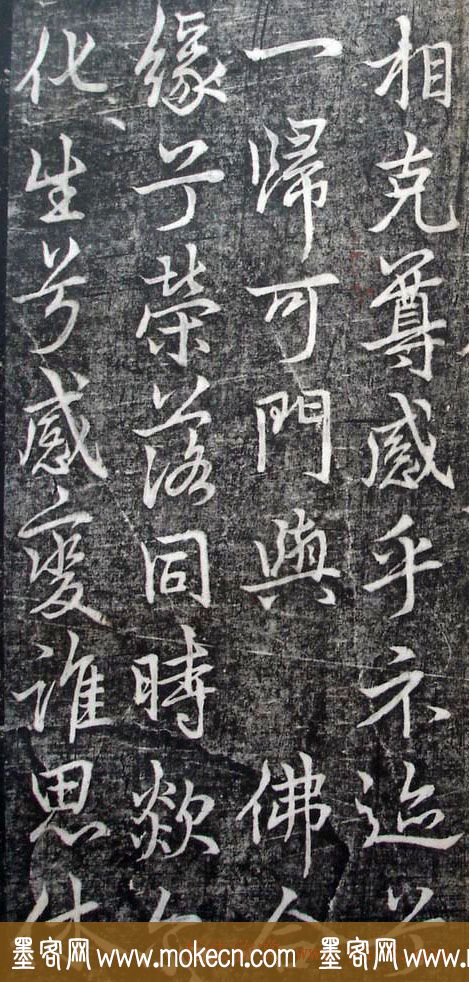 相克尊感乎示迹
一歸可門與 佛
緣兮榮落同時歘
化生兮感變誰思
墨客网 www.mokecn.com 墨客网 www.mokecn.